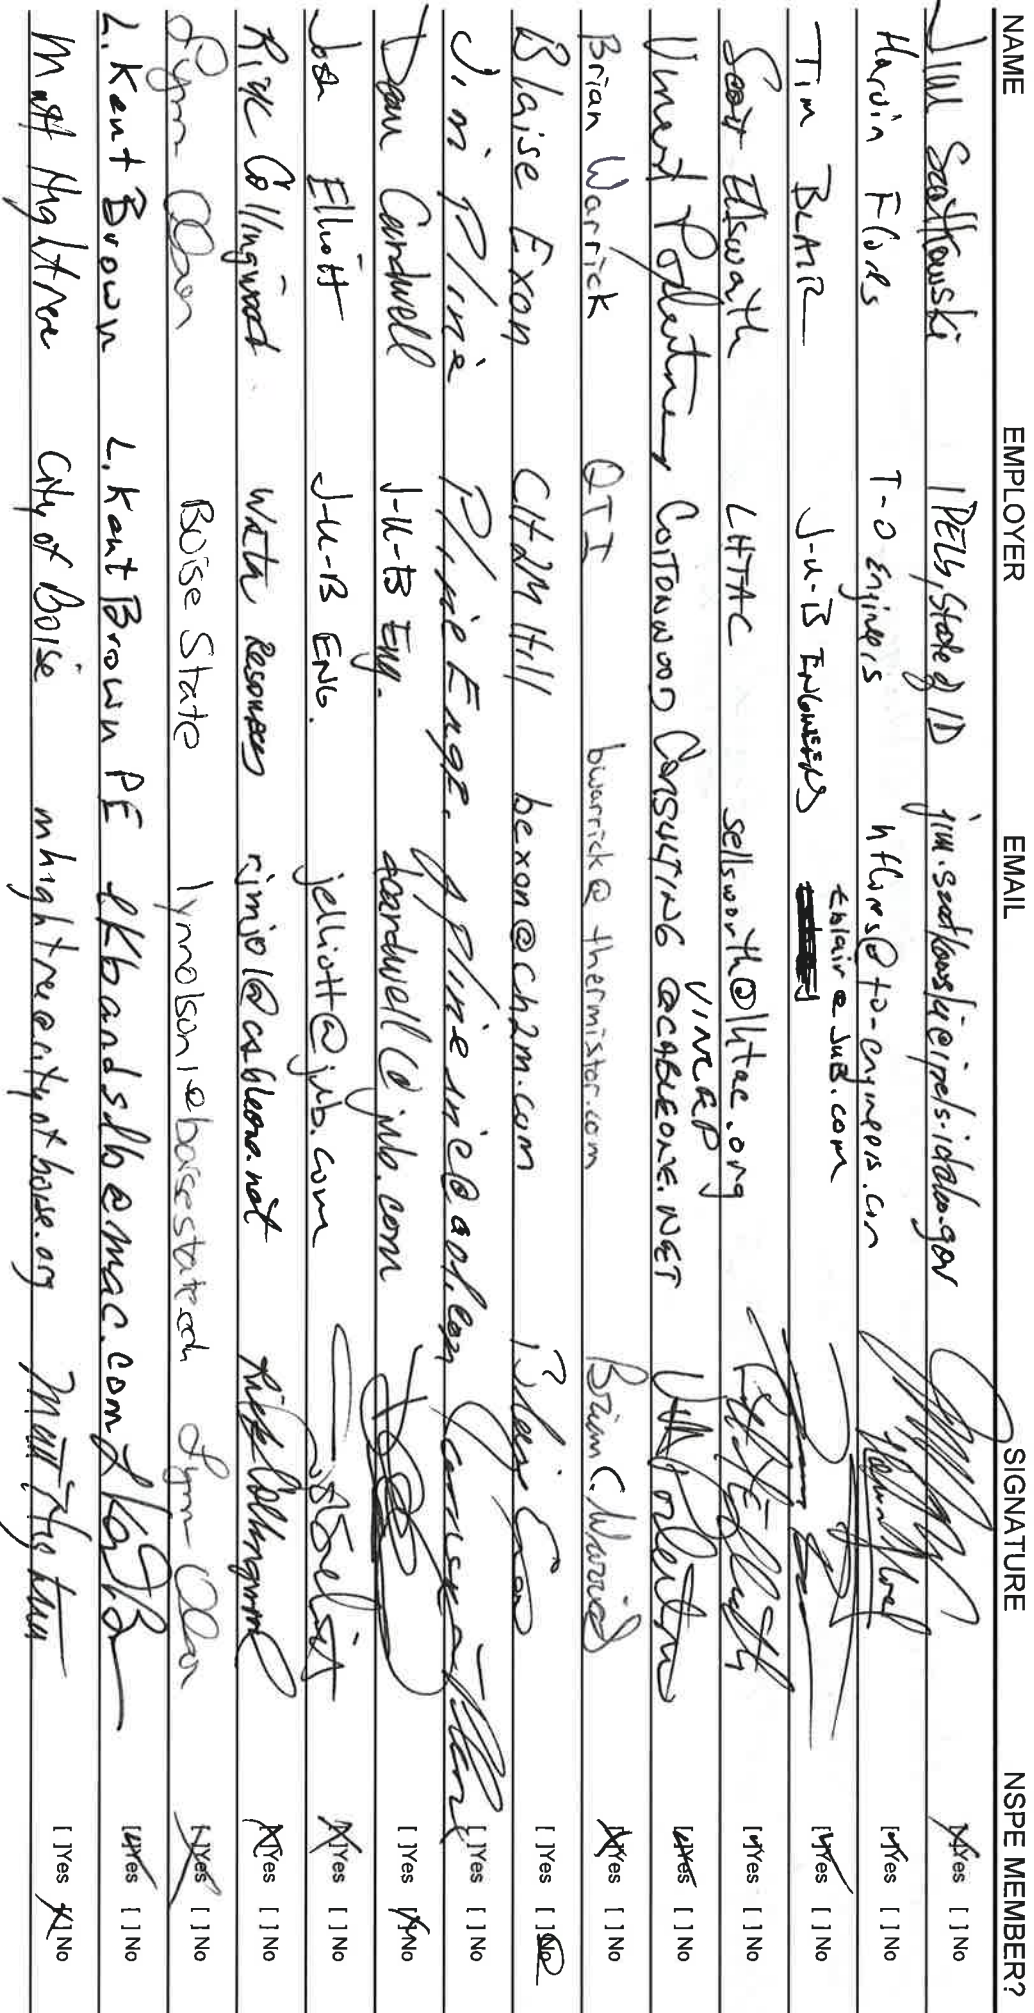 NAME EMPLOYER EMAIL SIGNATURE NSPE MEMBER?
Jim Szatkowski IPELS, State of ID jim.szatkowski@ipels.idaho.gov [X]Yes [ ]No
Harvin Flores T-O Engineers hflores@to-engineers.com [✓]Yes [ ]No
Tim BLAIR J-U-B ENGINEERS tblair@JUB.com [✓]Yes [ ]No
Scott Ellsworth LHTAC sellsworth@lhtac.org [✓]Yes [ ]No
Vincent COTTONWOOD CONSULTING VINCEP@CABLEONE.NET [✓]Yes [ ]No
Brian Warrick QTI bwarrick@thermistor.com Brian C. Warrick [X]Yes [ ]No
Blaise Exon CH2M Hill bexon@ch2m.com [ ]Yes [ ]No
Jim Pline Pline Engr. plineinc@aol.com [ ]Yes [ ]No
Dean Cardwell J-U-B Eng. dcardwell@jub.com [ ]Yes [X]No
Josh Elliott J-U-B ENG. jelliott@jub.com [X]Yes [ ]No
Rick Collingwood Water Resources rimjol@cableone.net Rick Collingwood [X]Yes [ ]No
Lynn Olson Boise State lynnolson1@boisestate.edu Lynn Olson [X]Yes [ ]No
L. Kent Brown L. Kent Brown PE lkbandslb@mac.com [✓]Yes [ ]No
Matt Hightree City of Boise mhightree@cityofboise.org [ ]Yes [X]No